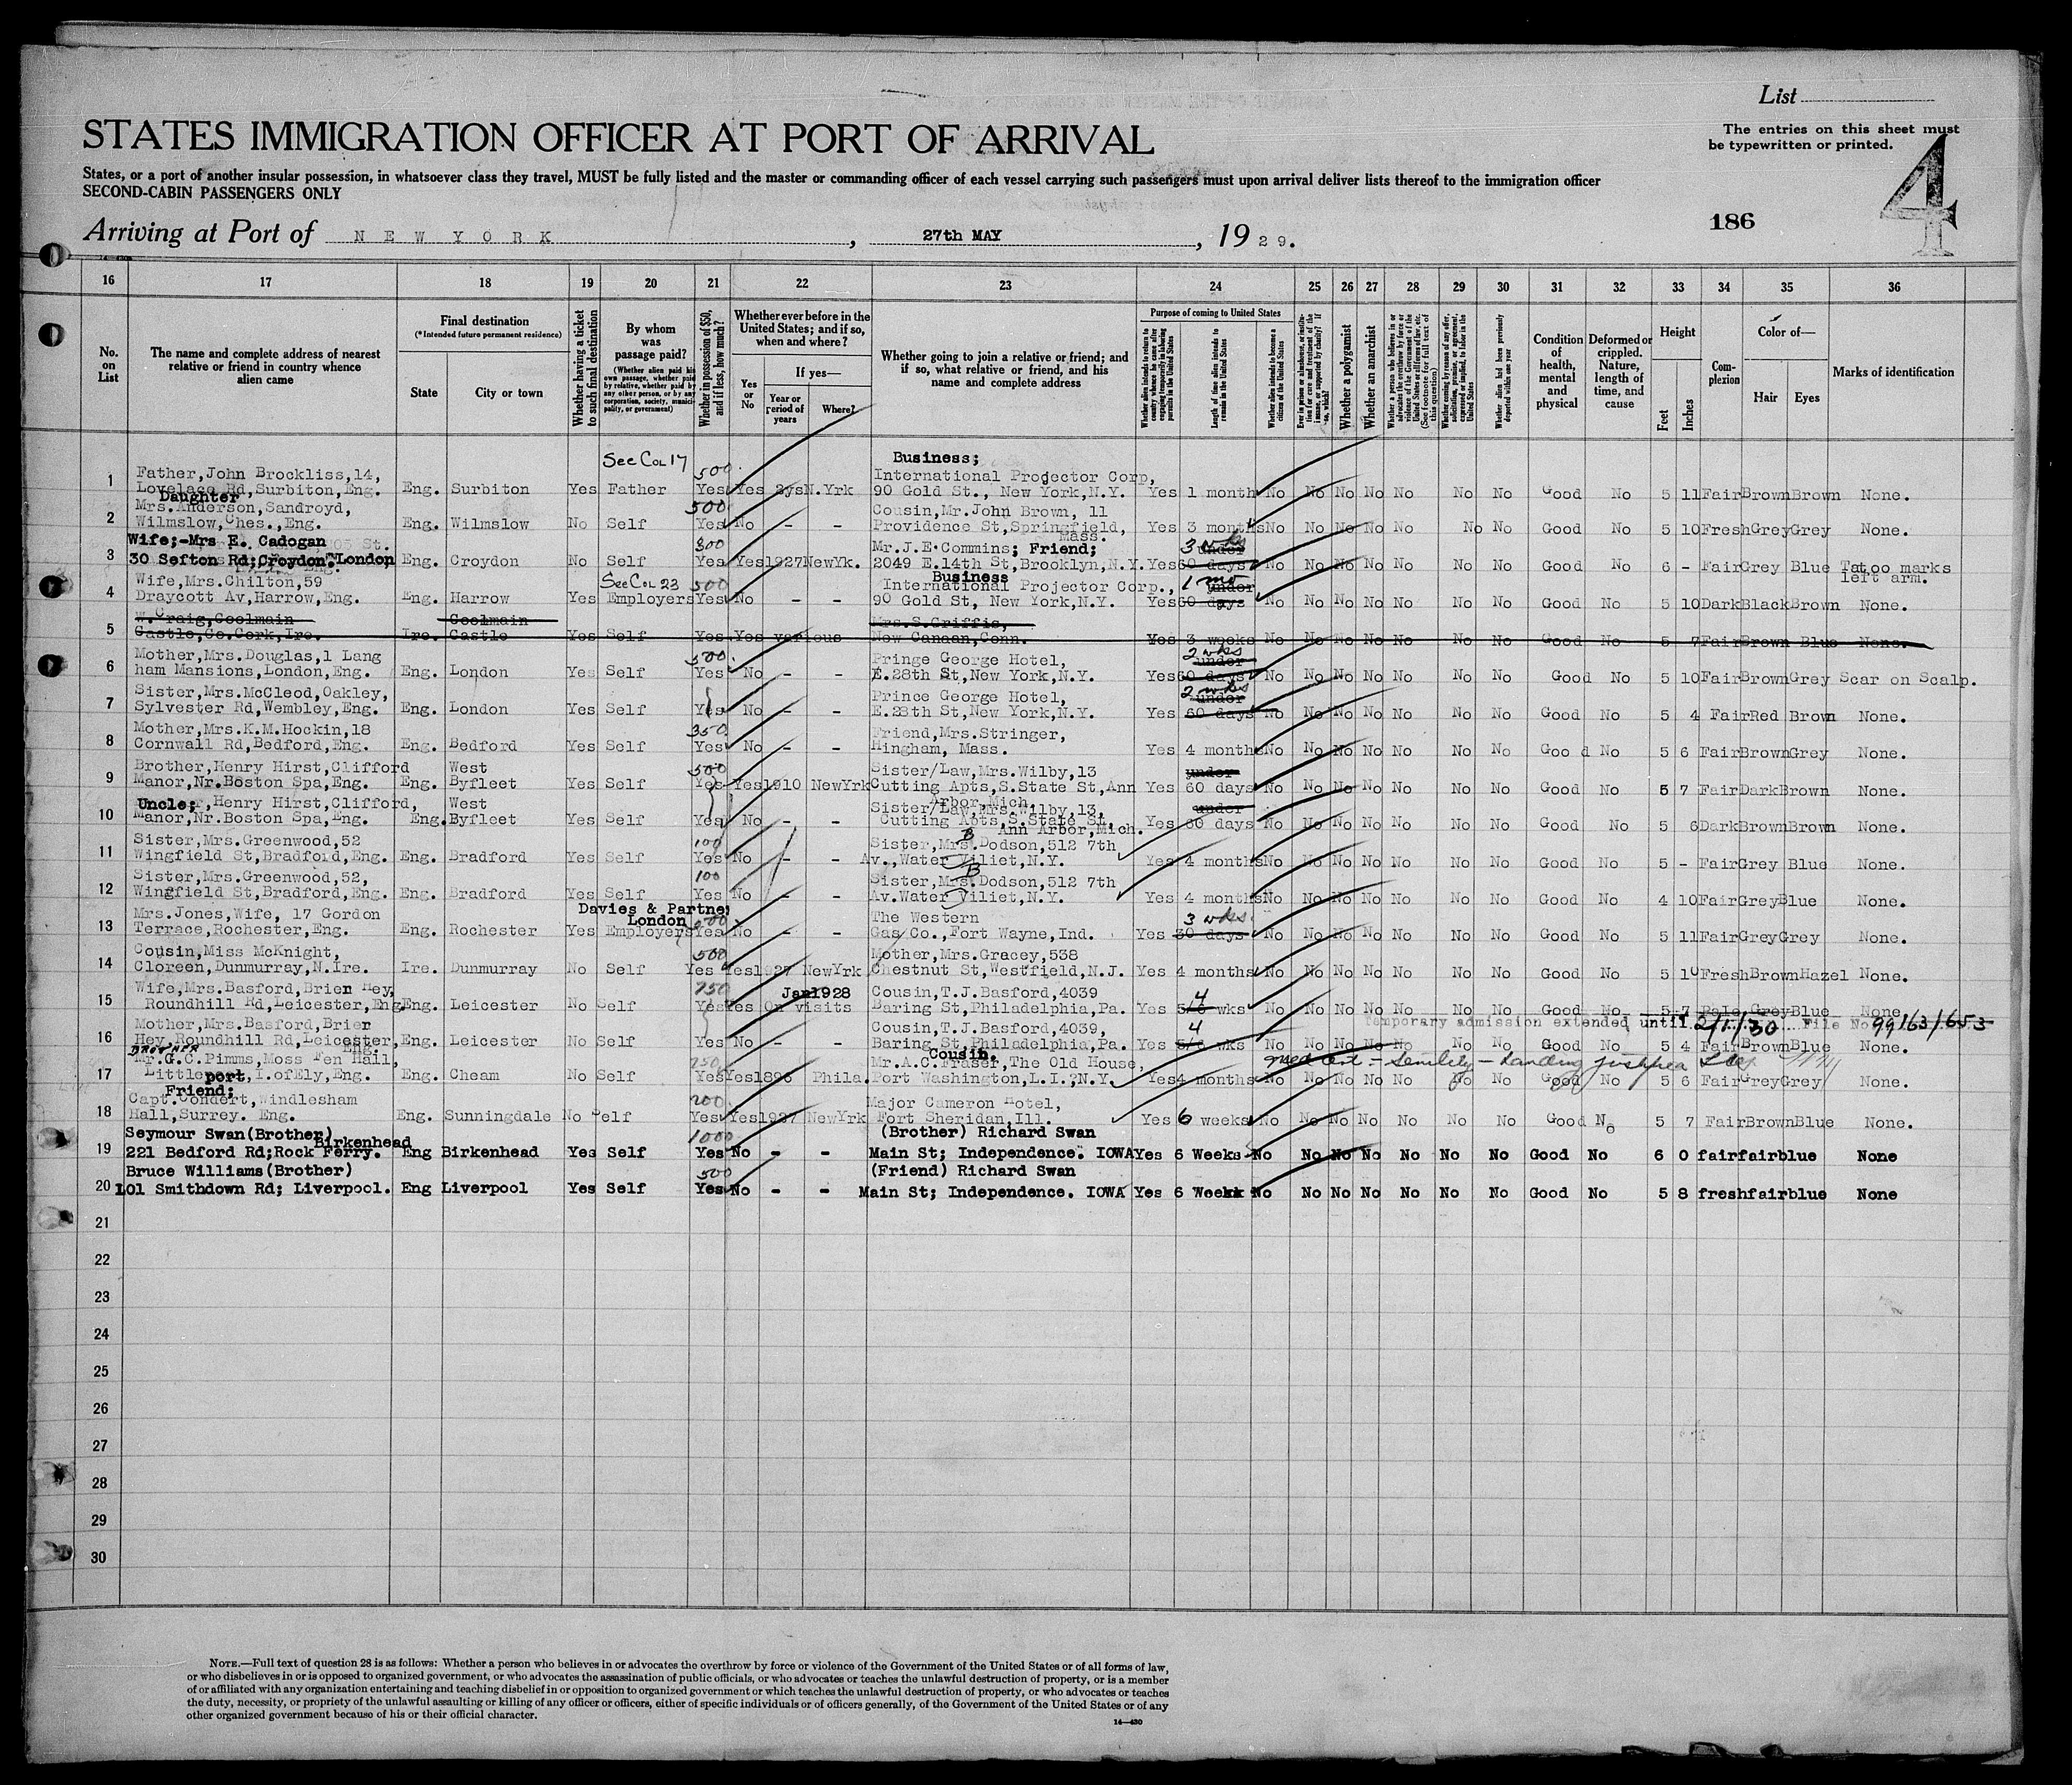 List
STATES IMMIGRATION OFFICER AT PORT OF ARRIVAL
The entries on this sheet must
be typewritten or printed.
4
States, or a port of another insular possession, in whatsoever class they travel, MUST be fully listed and the master or commanding officer of each vessel carrying such passengers must upon arrival deliver lists thereof to the immigration officer
SECOND-CABIN PASSENGERS ONLY
186
Arriving at Port of NEW YORK, 27th MAY, 1929.
16 17 18 19 20 21 22 23 24 25 26 27 28 29 30 31 32 33 34 35 36
No. on List
The name and complete address of nearest relative or friend in country whence alien came
Final destination
(*Intended future permanent residence)
State
City or town
Whether having a ticket to such final destination
By whom was passage paid?
(Whether alien paid his own passage, whether paid by relative, whether paid by any other person, or by any corporation, society, municipality, or government)
Whether in possession of $50, and if less, how much?
Whether ever before in the United States; and if so, when and where?
Yes or No
If yes—
Year or period of years
Where?
Whether going to join a relative or friend; and if so, what relative or friend, and his name and complete address
Purpose of coming to United States
Length of time alien intends to remain in the United States
Whether alien intends to become a citizen of the United States
Whether a polygamist
Whether an anarchist
Condition of health, mental and physical
Deformed or crippled. Nature, length of time, and cause
Height
Feet
Inches
Complexion
Color of—
Hair
Eyes
Marks of identification
See Col 17 500 Business;
1 Father,John Brockliss,14, International Projector Corp,
Lovelace Rd,Surbiton,Eng. Eng. Surbiton Yes Father Yes Yes 2ys N.Yrk 90 Gold St., New York,N.Y. Yes 1 month No No No No No No No Good No 5 11 Fair Brown Brown None.
Daughter 500
2 Mrs.Anderson, Sandroyd, Cousin,Mr.John Brown, 11
Wilmslow,Ches.,Eng. Eng. Wilmslow No Self Yes No - - Providence St,Springfield, Mass. Yes 3 months No No No No No No No Good No 5 10 Fresh Grey Grey None.
Wife;-Mrs E. Cadogan 300 Mr.J.E.Commins; Friend; 3 wks under
3 30 Sefton Rd;Croydon.London Eng. Croydon No Self Yes Yes 1927 NewYk. 2049 E.14th St,Brooklyn,N.Y. Yes 60 days No No No No No No No Good No 6 - Fair Grey Blue Tatoo marks left arm.
Wife,Mrs.Chilton,59 See Col 23 500 Business International Projector Corp., 1 mo under
4 Draycott Av,Harrow,Eng. Eng. Harrow Yes Employers Yes No - - 90 Gold St, New York,N.Y. Yes 60 days No No No No No No No Good No 5 10 Dark Black Brown None.
W.Craig,Coolmain Coolmain Mrs.S.Griffis,
5 Castle,Co.Cork,Ire. Ire. Castle Yes Self Yes Yes various New Canaan,Conn. Yes 3 weeks No No No No No No No Good No 5 7 Fair Brown Blue None.
Mother,Mrs.Douglas,1 Lang 500 Pringe George Hotel, 2 wks under
6 ham Mansions,London,Eng. Eng. London Yes Self Yes No - - E.28th St,New York,N.Y. Yes 60 days No No No No No No No Good No 5 10 Fair Brown Grey Scar on Scalp.
Sister,Mrs.McCleod,Oakley, Prince George Hotel, 2 wks under
7 Sylvester Rd,Wembley,Eng. Eng. London Yes Self Yes No - - E.28th St,New York,N.Y. Yes 60 days No No No No No No No Good No 5 4 Fair Red Brown None.
Mother,Mrs.K.M.Hockin,18 350 Friend,Mrs.Stringer,
8 Cornwall Rd,Bedford,Eng. Eng. Bedford Yes Self Yes No - - Hingham, Mass. Yes 4 months No No No No No No No Good No 5 6 Fair Brown Grey None.
Brother,Henry Hirst,Clifford West 500 Sister/Law,Mrs.Wilby,13 under
9 Manor,Nr.Boston Spa,Eng. Eng. Byfleet Yes Self Yes Yes 1910 NewYrk Cutting Apts,S.State St,Ann Arbor,Mich. Yes 60 days No No No No No No No Good No 5 7 Fair Dark Brown None.
Uncle;,Henry Hirst,Clifford, West Sister/Law,Mrs.Wilby,13, under
10 Manor,Nr.Boston Spa,Eng. Eng. Byfleet Yes Self Yes No - - Cutting Apts,S.State St, Ann Arbor,Mich. Yes 60 days No No No No No No No Good No 5 6 Dark Brown Brown None.
Sister,Mrs.Greenwood,52 100 Sister,Mrs.Dodson,512 7th
11 Wingfield St,Bradford,Eng. Eng. Bradford Yes Self Yes No - - Av.,Water Viliet,N.Y. Yes 4 months No No No No No No No Good No 5 - Fair Grey Blue None.
Sister,Mrs.Greenwood,52, 100 Sister,Mrs.Dodson,512 7th
12 Wingfield St,Bradford,Eng. Eng. Bradford Yes Self Yes No - - Av.Water Viliet,N.Y. Yes 4 months No No No No No No No Good No 4 10 Fair Grey Blue None.
Mrs.Jones,Wife, 17 Gordon Davies & Partne; London The Western 3 wks.
13 Terrace,Rochester,Eng. Eng. Rochester Yes Employers Yes No - - Gas Co.,Fort Wayne,Ind. Yes 30 days No No No No No No No Good No 5 11 Fair Grey Grey None.
Cousin,Miss McKnight, 500 Mother,Mrs.Gracey,538
14 Cloreen,Dunmurray,N.Ire. Ire. Dunmurray No Self Yes Yes 1927 NewYrk Chestnut St,Westfield,N.J. Yes 4 months No No No No No No No Good No 5 10 Fresh Brown Hazel None.
Wife,Mrs.Basford,Brien Hey, 750 Jan1928 Cousin,T.J.Basford,4039 4
15 Roundhill Rd,Leicester,Eng. Eng. Leicester No Self Yes Yes On visits Baring St,Philadelphia,Pa. Yes 5/6 wks No No No No No No No Good No 5 7 Pale Grey Blue None
Temporary admission extended until 2/1/30 File No 99163/653
Mother,Mrs.Basford,Brier Cousin,T.J.Basford,4039, 4
16 Hey,Roundhill Rd,Leicester, Eng. Eng. Leicester No Self Yes No - - Baring St,Philadelphia,Pa. Yes 5/6 wks No No No No No No No Good No 5 4 Fair Brown Blue None.
BROTHER Cousin. med cert - Senility - Landing
Mr.G.C.Pimms,Moss Fen Hall, 250 Mr.A.C.Fraser,The Old House,
17 Littleport,I.ofEly,Eng. Eng. Cheam No Self Yes Yes 1896 Phila. Port Washington,L.I.,N.Y. Yes 4 months No No No No No No No Good No 5 6 Fair Grey Grey None.
Friend;
Capt.Condert,Windlesham 200 Major Cameron Hotel,
18 Hall,Surrey. Eng. Eng. Sunningdale No Self Yes Yes 1927 NewYrk Fort Sheridan,Ill. Yes 6 weeks No No No No No No No Good No 5 7 Fair Brown Blue None.
Seymour Swan(Brother) Birkenhead 1000 (Brother) Richard Swan
19 221 Bedford Rd;Rock Ferry. Eng Birkenhead Yes Self Yes No - - Main St; Independence. IOWA Yes 6 Weeks No No No No No No No Good No 6 0 fair fair blue None
Bruce Williams(Brother) 500 (Friend) Richard Swan
20 101 Smithdown Rd; Liverpool. Eng Liverpool Yes Self Yes No - - Main St; Independence. IOWA Yes 6 Weekk No No No No No No No Good No 5 8 fresh fair blue None
21
22
23
24
25
26
27
28
29
30
NOTE.—Full text of question 28 is as follows: Whether a person who believes in or advocates the overthrow by force or violence of the Government of the United States or of all forms of law,
or who disbelieves in or is opposed to organized government, or who advocates the assassination of public officials, or who advocates or teaches the unlawful destruction of property, or is a member
of or affiliated with any organization entertaining and teaching disbelief in or opposition to organized government or which teaches the unlawful destruction of property, or who advocates or teaches
the duty, necessity, or propriety of the unlawful assaulting or killing of any officer or officers, either of specific individuals or of officers generally, of the Government of the United States or of any
other organized government because of his or their official character.
14—430